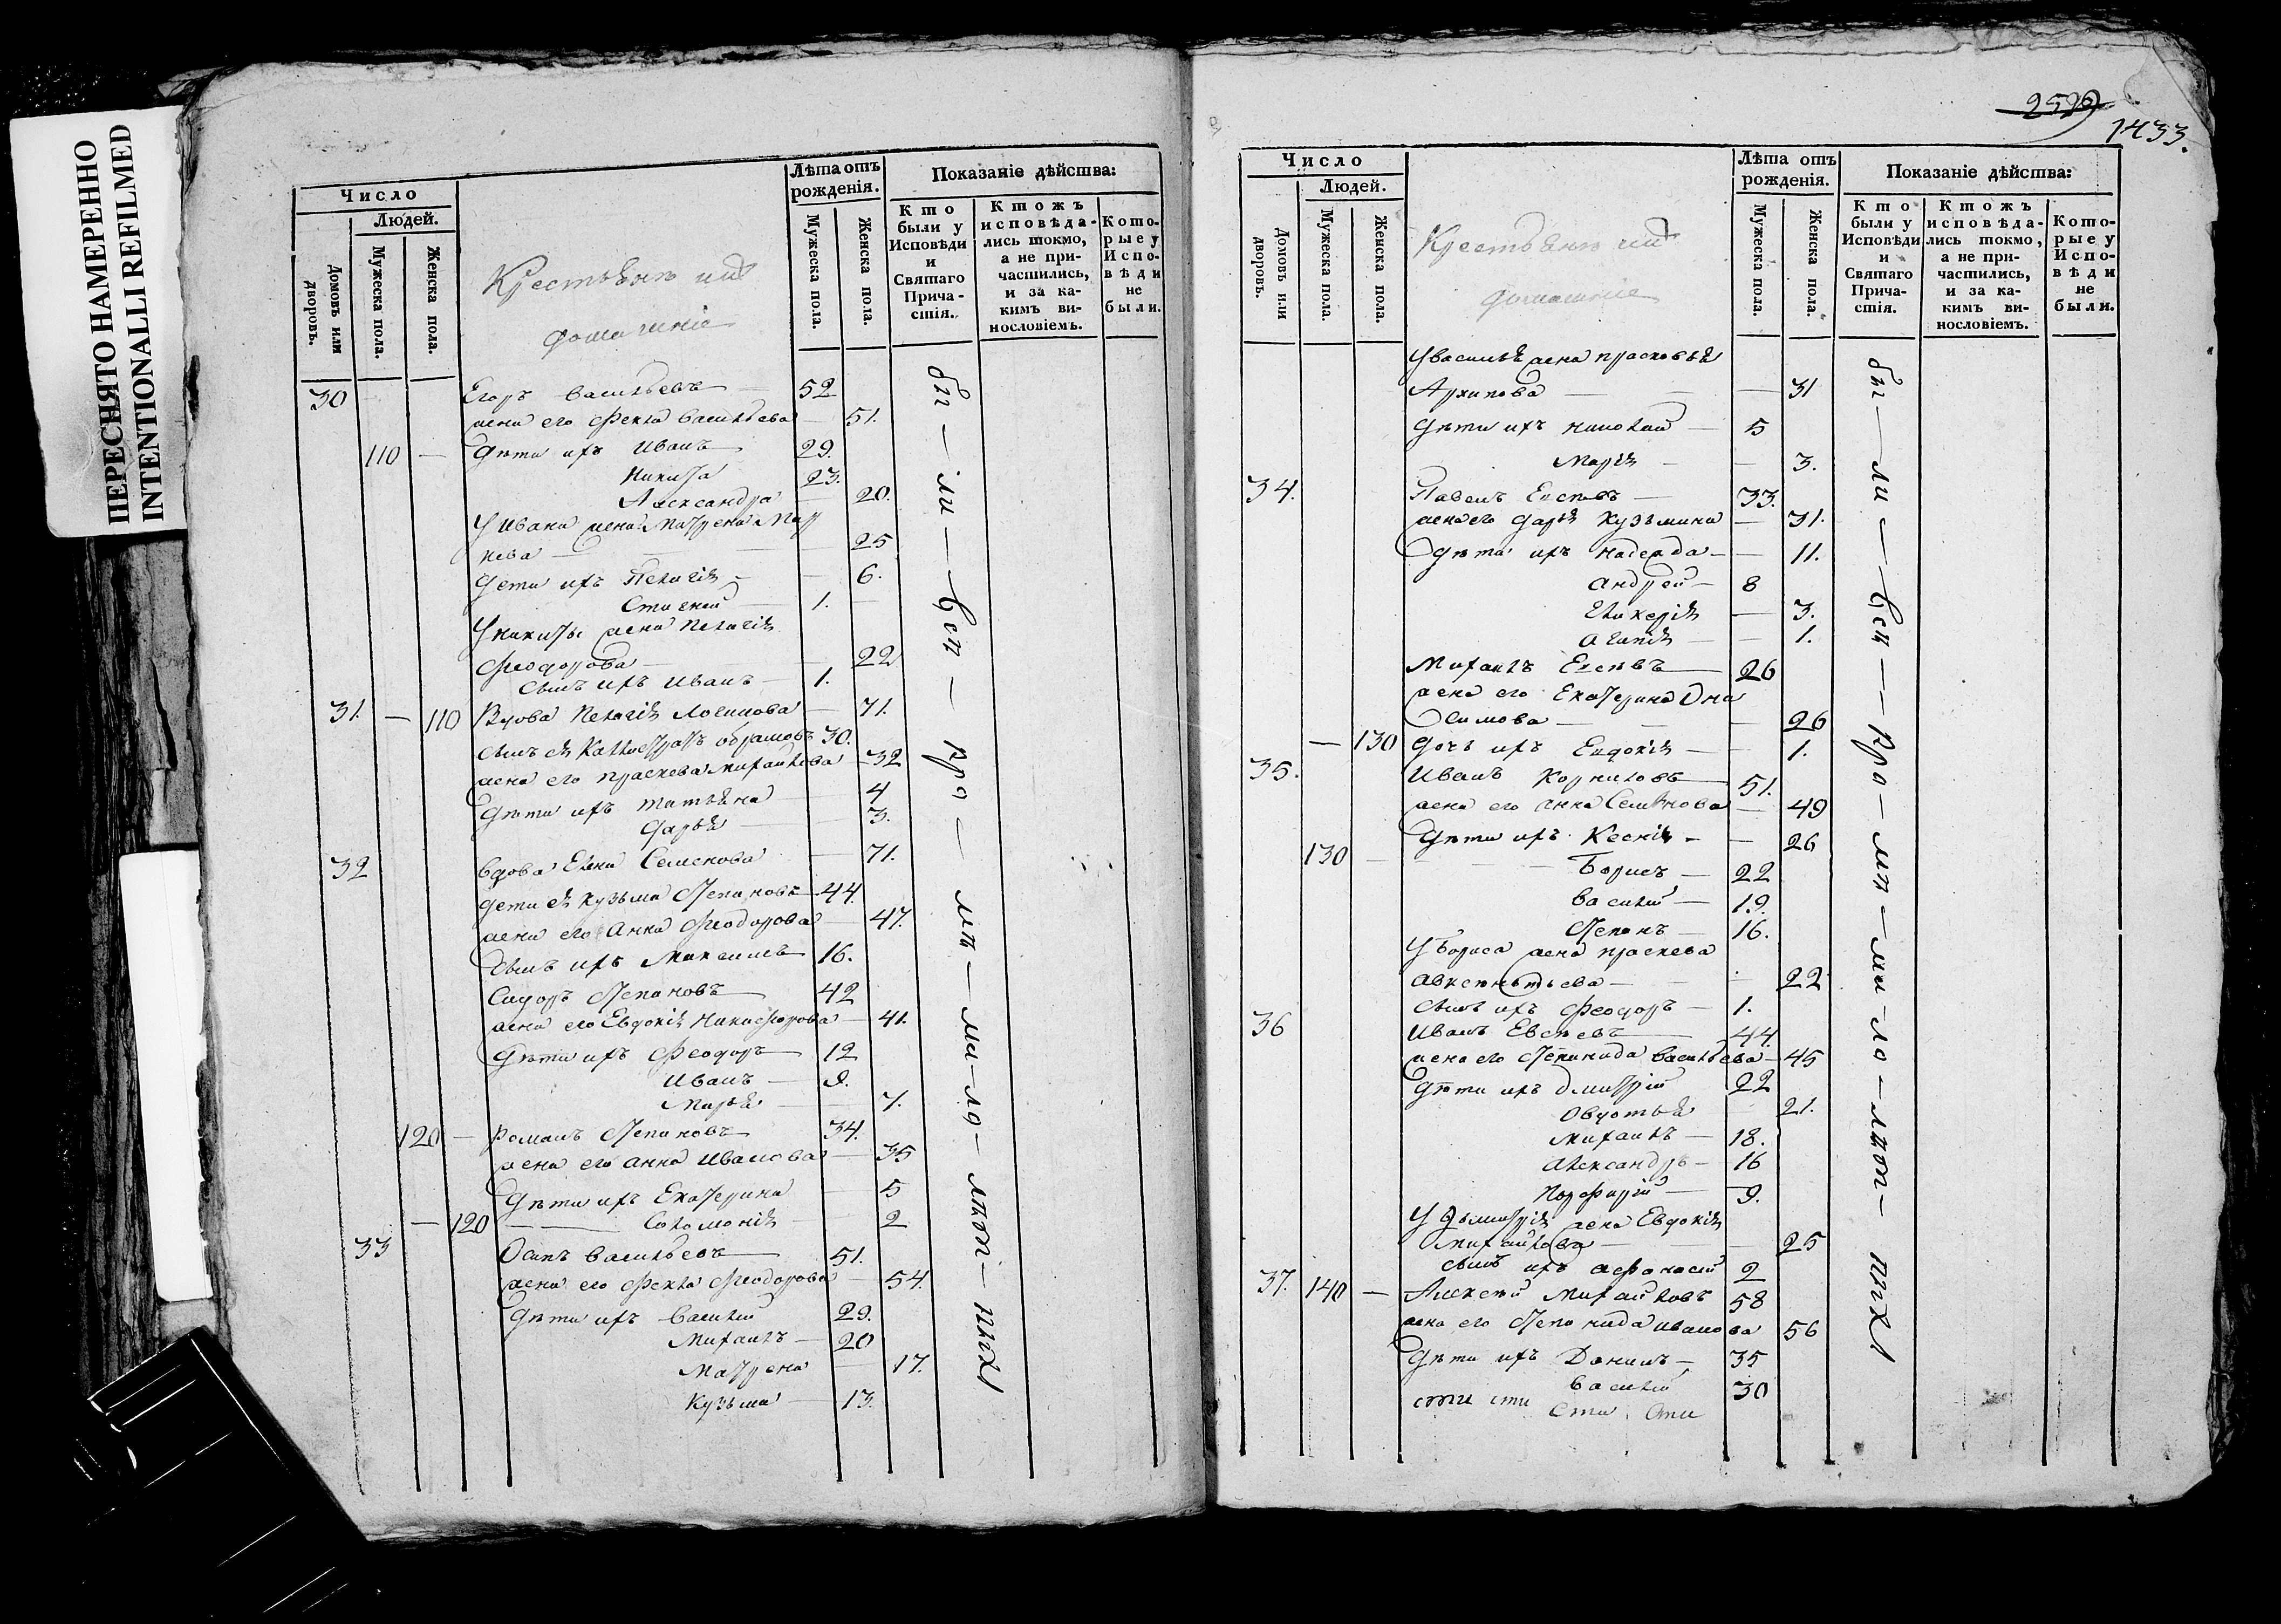 ПЕРЕСНЯТО НАМЕРЕННО
INTENTIONALLI REFILMED
Число
Людей.
Домовъ или дворовъ.
Мужеска пола.
Женска пола.
Крестьянъ ихъ
домашніе
Лѣта отъ рожденія.
Мужеска пола.
Женска пола.
Показаніе дѣйства:
Кто были у Исповѣди и Святаго Прича-стія.
Ктожъ исповѣда-лись токмо, а не при-частились, и за ка-кимъ ви-нословіемъ.
Кото-рые у Испо-вѣди не были.
30 Егоръ Васильевъ 52
жена его Фекла Васильева 51.
110 — Дѣти ихъ Иванъ 29.
Никита 23.
Александра 20.
У Ивана жена Матрена Мар
кова 25
Дети ихъ Пелагія 6.
1.
У Никиты жена Пелагія
Феодорова 22
Сынъ ихъ Иванъ 1.
31. — 110 Вдова Пелагія Логинова 71.
сынъ ея Каллистратъ Абрамовъ 30.
жена его Праскева Михайлова 32
Дѣти ихъ Татьяна 4
Дарья 3.
32 Вдова Елена Семенова 71.
Дети ея Кузьма Степановъ 44.
жена его Анна Феодорова 47.
Сынъ ихъ Максимъ 16.
Сидоръ Степановъ 42
жена его Евдокія Никифорова 41.
Дѣти ихъ Феодоръ 12
Иванъ 9.
Марья 7.
120 — Романъ Степановъ 34.
жена его Анна Иванова 35
Дѣти ихъ Екатерина 5
— 120 Соломонія 2
33 Осипъ Васильевъ 51.
жена его Фекла Феодорова 54.
Дѣти ихъ Василій 29.
Михаилъ 20
Матрена 17.
Кузьма 13.
бы — ли — — — при — — — — — — — — — ныхъ
2529
1433.
Число
Людей.
Домовъ или дворовъ.
Мужеска пола.
Женска пола.
Крестьянъ ихъ
домашніе
Лѣта отъ рожденія.
Мужеска пола.
Женска пола.
Показаніе дѣйства:
Кто были у Исповѣди и Святаго Прича-стія.
Ктожъ исповѣда-лись токмо, а не при-частились, и за ка-кимъ ви-нословіемъ.
Кото-рые у Испо-вѣди не были.
У Василья жена Прасковья
Архипова 31
Дѣти ихъ Николай 5
Марія 3.
34. Павелъ 33.
жена его Дарья Кузьмина 31.
Дѣти ихъ Надежда 11.
Андрей 8
Гликерія 3.
Агапія 1.
Михаилъ 26
жена его Екатерина Они
симова 26
— 130 Дочь ихъ Евдокія 1.
35. Иванъ Корниловъ 51.
жена его Анна Семенова 49
Дѣти ихъ Ксенія 26
130 — Борисъ 22
Василій 19.
Степанъ 16.
У Бориса жена Праскева
Авксентьева 22
Сынъ ихъ Феодоръ 1.
36 Иванъ 44.
жена его Степанида Васильева 45
Дѣти ихъ Дмитрій 22
Овдотья 21.
Михаилъ 18.
Александръ 16
Порфирій 9.
У Дьмитрія жена Евдокія
Михайлова 25
Сынъ ихъ Афанасій 2
37. 140 — Алексѣй Михайловъ 58
жена его Степанида Иванова 56
Дѣти ихъ Данилъ 35
Василій 30